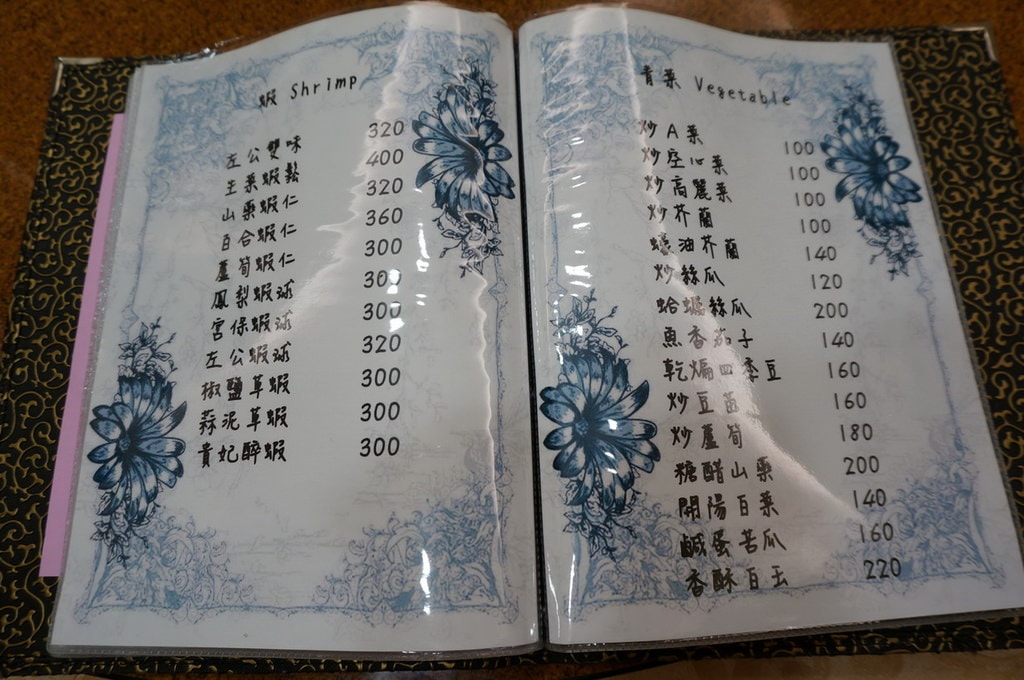 蝦 Shrimp
左公雙味 320
生菜蝦鬆 400
山藥蝦仁 320
百合蝦仁 360
蘆筍蝦仁 300
鳳梨蝦球 300
宮保蝦球 300
左公蝦球 320
椒鹽草蝦 300
蒜泥草蝦 300
貴妃醉蝦 300
青菜 Vegetable
炒A菜 100
炒空心菜 100
炒高麗菜 100
炒芥蘭 100
蠔油芥蘭 140
炒絲瓜 120
蛤蠣絲瓜 200
魚香茄子 140
乾煸四季豆 160
炒豆苗 160
炒蘆筍 180
糖醋山藥 200
開陽白菜 140
鹹蛋苦瓜 160
香酥白玉 220